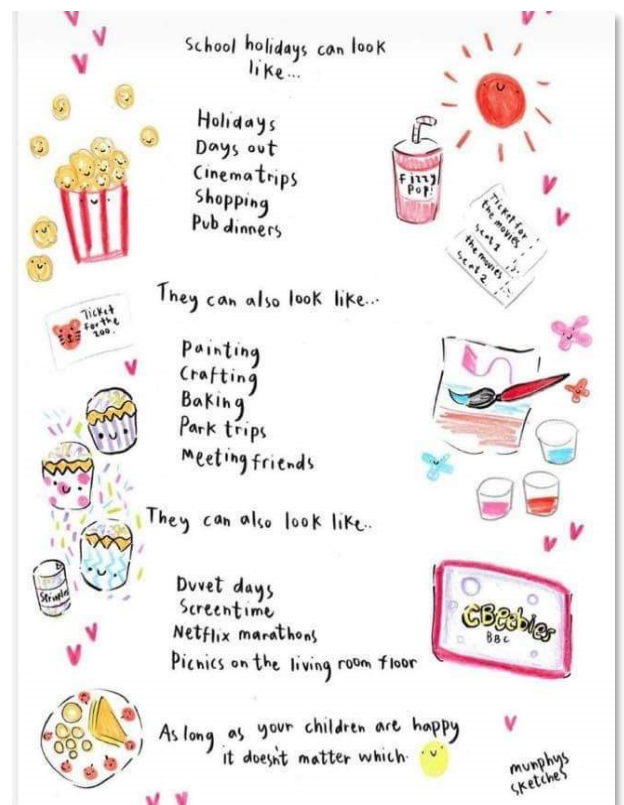 School holidays can look
like...
Holidays
Days out
Cinema trips
Shopping
Pub dinners
Fizzy
Pop!
Ticket for
the movies
Seat 1
the movies
Seat 2
They can also look like...
Ticket
for the
zoo.
Painting
Crafting
Baking
Park trips
Meeting friends
They can also look like..
Duvet days
Screentime
Netflix marathons
Picnics on the living room floor
CBeebies
BBC
As long as your children are happy
it doesn't matter which.
munphys
sketches